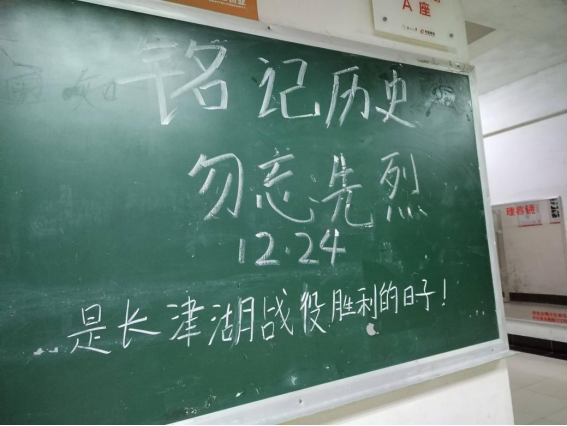 A座
铭记历史
勿忘先烈
12.24
是长津湖战役胜利的日子!
理容镜